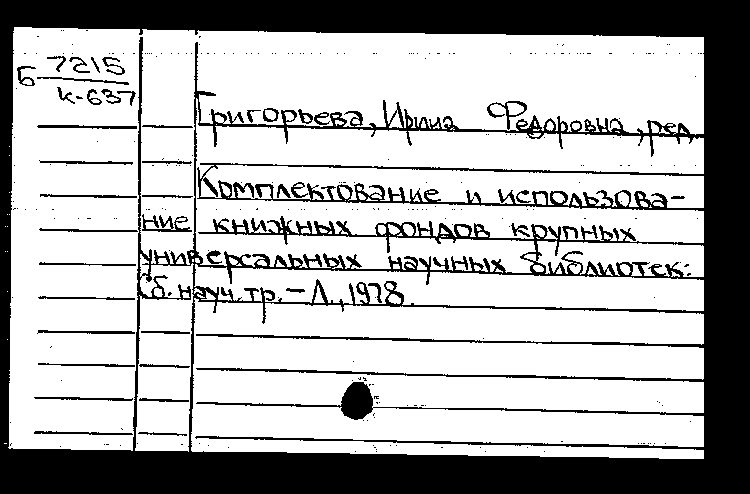 Б 7215
К-637
Григорьева, Ирина Федоровна, ред.
Комплектование и использова-
ние книжных фондов крупных
универсальных научных библиотек:
Сб. науч. тр. – Л., 1978.